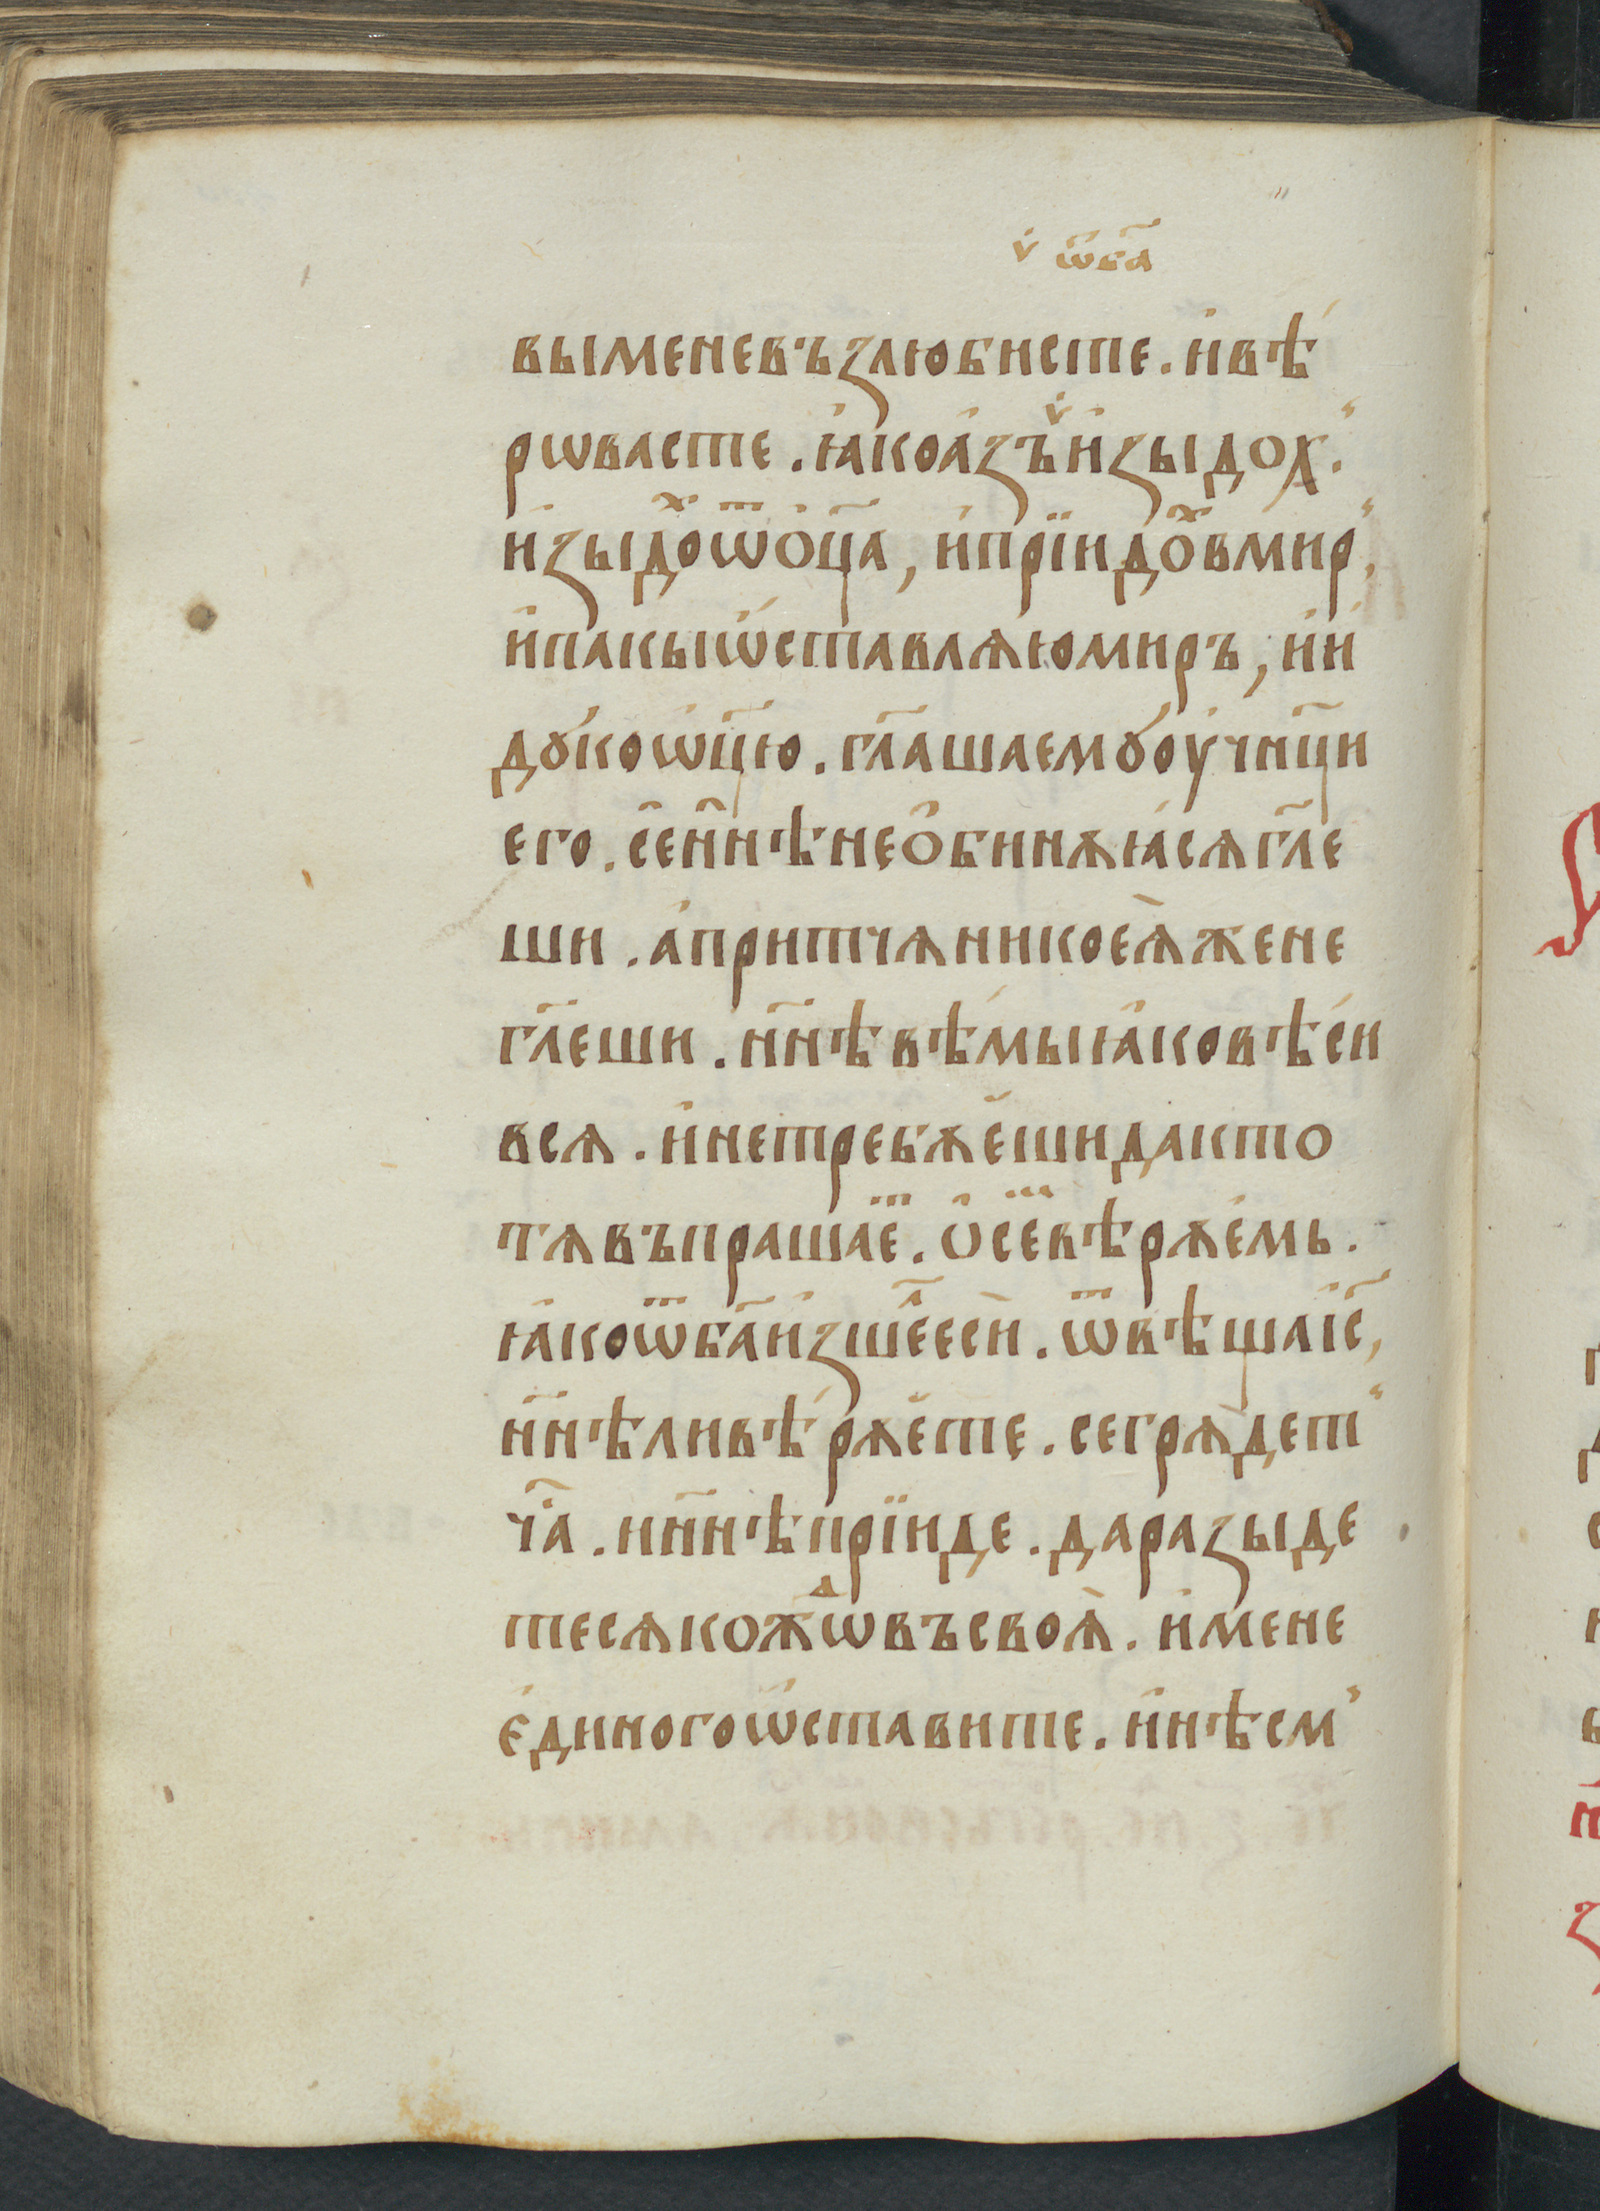 ѿ б҃а
вымене въꙁлюбисте . и҆вѣ́
рѡвасте . ꙗ҆коа҆ꙁъ и҆ꙁыдох̾ .
и҆ꙁыдоⷯѿѻ҆ц҃а , и҆прїидоⷯвмир̾ ,
и҆пакыѡ҆ставлѧюмиръ , и҆и҆
дꙋ́коѡ҆ц҃ю . гл҃ашаемꙋоу҆чн҃ци
его . сен҃нѣнеѻ҆бинѫꙗ҆сѧгл҃е
ши . а҆притчѧникоеѧ̀жене
гл҃еши . нн҃ѣвѣ́мыꙗ҆ковѣ́си
всѧ . и҆нетребѫ́ешидакто
тѧвъпрашаеⷮ . ѻ҆сеⷨвѣрѫ́емь .
ꙗ҆коѿб҃аи҆ꙁшеⷧ҇еси̇ . ѿвѣщаі҆с҃ ,
нн҃ѣливѣ́рѫ́ете . сегрѧ̀дет̾
ча҃ . инн҃ѣпрїиде . дараꙁыде
тесѧкожⷣѡвъсвоѧ̀ . и҆мене
є҆диногоѡ҆ставите . и҆нѣсм̾